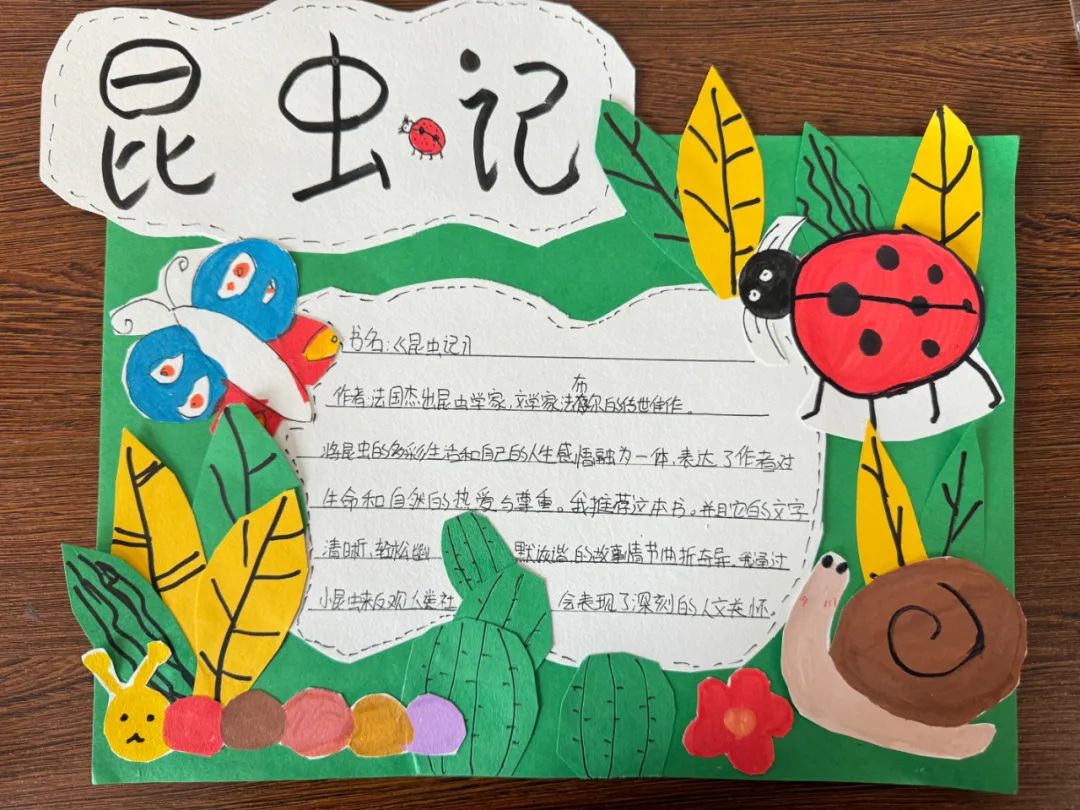 昆虫记
书名:《昆虫记》
作者:法国杰出昆虫学家,文学家法布尔的传世佳作。
将昆虫的多彩生活和自己的人生感悟融为一体,表达了作者对
生命和自然的热爱与尊重。我推荐这本书。并且它的文字
清晰,轻松幽默诙谐的故事情节曲折奇异。我通过
小昆虫来反观人类社会表现了深刻的人文关怀。